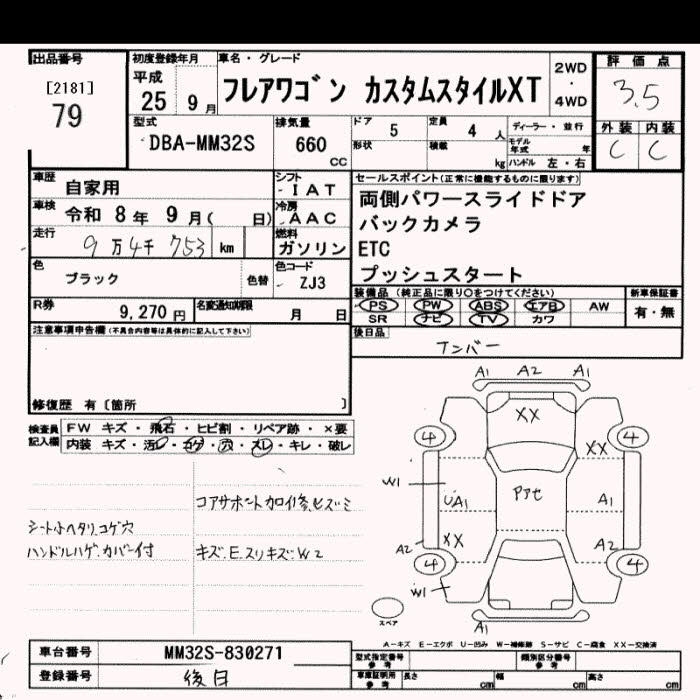 出品番号
[2181]
79
初度登録年月
平成
25 9月
車名・グレード
フレアワゴン カスタムスタイルXT
2WD
・
4WD
評価点
3.5
外装 内装
C C
型式
DBA-MM32S
排気量
660
CC
ドア 5
定員 4 人
形状
積載 kg
ディーラー・並行
モデル年式 年
ハンドル 左・右
車歴 自家用
車検 令和 8年 9月( 日)
走行 9万4千753 km
シフト
IAT
冷房
AAC
燃料
ガソリン
色
ブラック
色替
色コード
ZJ3
セールスポイント(正常に機能するものに限ります)
両側パワースライドドア
バックカメラ
ETC
プッシュスタート
R券 9,270円
名変通知期限 月 日
装備品(純正品に限り○をつけてください)
PS PW ABS エアB AW
SR ナビ TV カワ
新車保証書
有・無
後日品
ナンバー
注意事項申告欄(不具合内容等は具体的に記入して下さい)
修復歴 有〔箇所 〕
検査員記入欄
FW キズ・飛石・ヒビ割・リペア跡・×要
内装 キズ・汚レ・コゲ・穴・スレ・キレ・破レ
コアサポート加工修、ヒズミ
シート小ヘタリ、コゲ穴
ハンドルハゲ、カバー付
キズ、E、スリキズ、W2
A1 A2 A1
XX
4 4
XX
W1
UA1
Pアセ
A1
XX
A2
A2
4 4
W1
A1
スペア
A-キズ E-エクボ U-凹み W-補修跡 S-サビ C-腐食 XX-交換済
車台番号 MM32S-830271
登録番号 後日
型式指定番号
参考
類別区分番号
参考
車庫証明用
参考
長さ cm
幅 cm
高さ cm